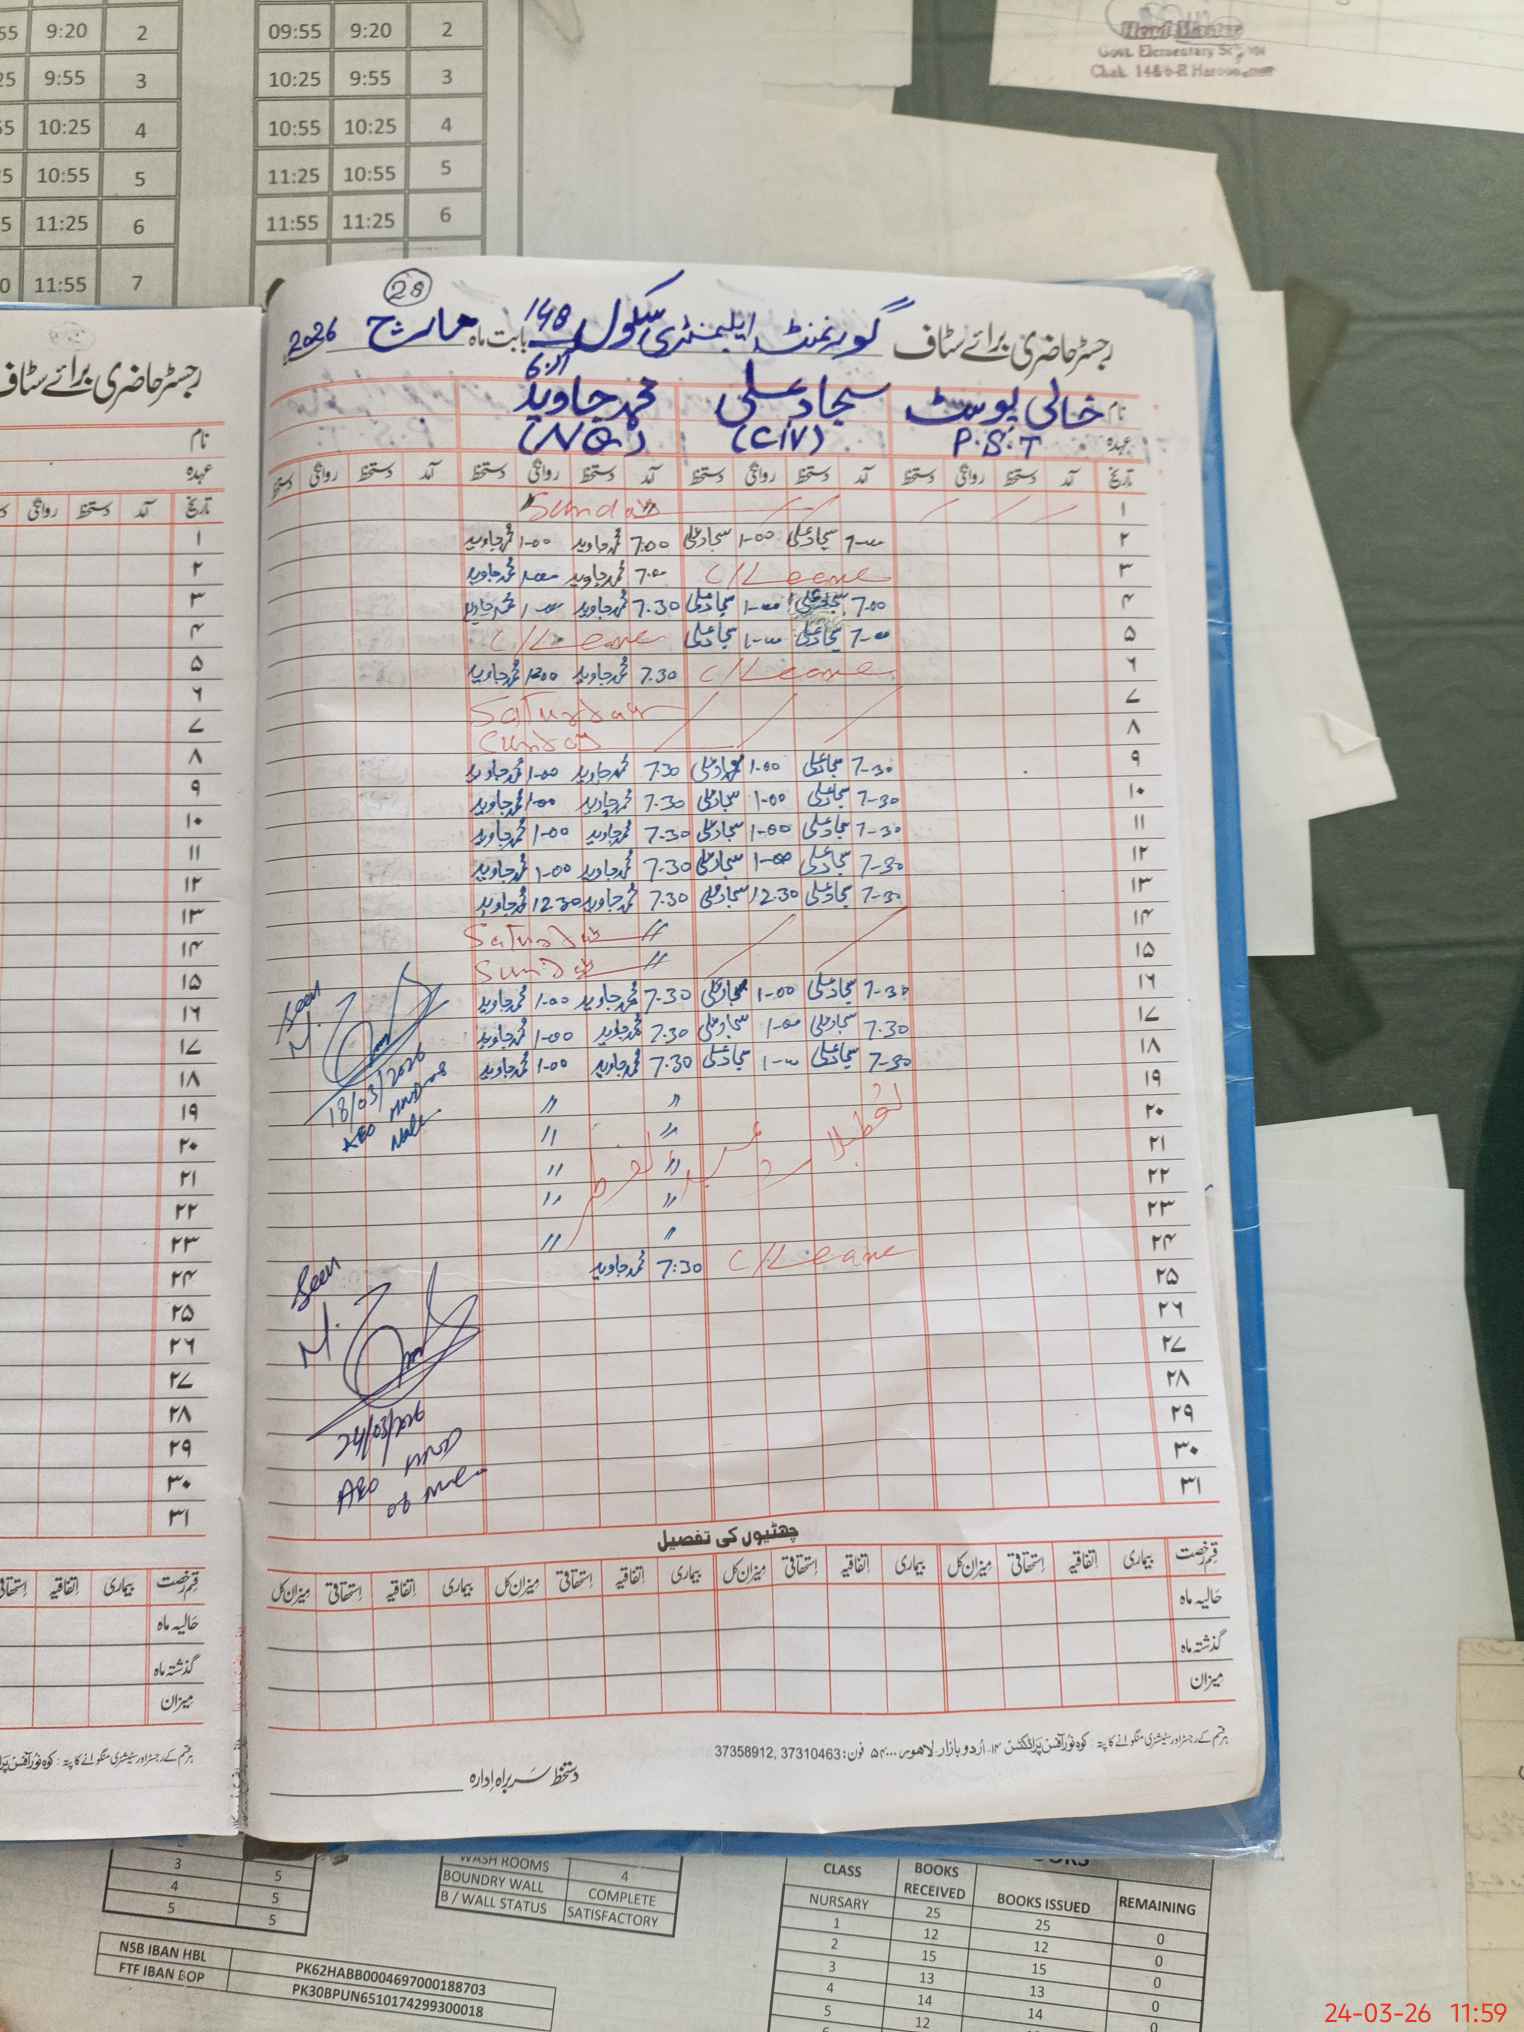 55 9:20 2
25 9:55 3
55 10:25 4
25 10:55 5
55 11:25 6
11:55 7
09:55 9:20 2
10:25 9:55 3
10:55 10:25 4
11:25 10:55 5
11:55 11:25 6
Head Master
Govt. Elementary School
28
رجسٹر حاضری برائے سٹاف گورنمنٹ ایلیمنٹری سکول 148 بابت ماہ مارچ 2026
نام خالی پوسٹ سجاد علی محمد جاوید
عہدہ P.S.T (C/IV) (N.Q.)
تاریخ آمد دستخط روانگی دستخط آمد دستخط روانگی دستخط آمد دستخط روانگی دستخط آمد دستخط روانگی دستخط
۱ Sunday
۲ 7-00 سجاد علی 1-00 سجاد علی 7:00 محمد جاوید 1-00 محمد جاوید
۳ C/Leave 7.00 محمد جاوید 1.00 محمد جاوید
۴ 7.00 سجاد علی 1-00 سجاد علی 7.30 محمد جاوید 1.00 محمد جاوید
۵ 7-00 سجاد علی 1-00 سجاد علی C/Leave
۶ C/Leave 7.30 محمد جاوید 1.00 محمد جاوید
۷ Saturday
۸ Sunday
۹ 7-30 سجاد علی 1-00 سجاد علی 7.30 محمد جاوید 1-00 محمد جاوید
۱۰ 7-30 سجاد علی 1-00 سجاد علی 7.30 محمد جاوید 1-00 محمد جاوید
۱۱ 7-30 سجاد علی 1-00 سجاد علی 7.30 محمد جاوید 1-00 محمد جاوید
۱۲ 7-30 سجاد علی 1-00 سجاد علی 7.30 محمد جاوید 1-00 محمد جاوید
۱۳ 7-30 سجاد علی 12.30 سجاد علی 7.30 محمد جاوید 12.30 محمد جاوید
۱۴ Saturday //
۱۵ Sunday //
۱۶ 7-30 سجاد علی 1-00 سجاد علی 7.30 محمد جاوید 1-00 محمد جاوید
۱۷ 7.30 سجاد علی 1-00 سجاد علی 7.30 محمد جاوید 1-00 محمد جاوید
۱۸ 7-30 سجاد علی 1-00 سجاد علی 7.30 محمد جاوید 1-00 محمد جاوید
۱۹ // //
۲۰ // //
۲۱ تعطیلات عید الفطر // //
۲۲ // //
۲۳ // //
۲۴ C/Leave 7:30 محمد جاوید
۲۵
۲۶
۲۷
۲۸
۲۹
۳۰
۳۱
Seen
18/03/2026
AEO
Seen
24/03/2026
AEO
چھٹیوں کی تفصیل
قسم رخصت بیماری اتفاقیہ استحقاقی میزان کل بیماری اتفاقیہ استحقاقی میزان کل بیماری اتفاقیہ استحقاقی میزان کل بیماری اتفاقیہ استحقاقی میزان کل
حالیہ ماہ
گذشتہ ماہ
میزان
ہر قسم کے رجسٹر اور سٹیشنری منگوانے کا پتہ : کوہ نور آفس پراڈکٹس ۱۴۔ اردو بازار لاہور ۵۴۰۰۰ فون: 37310463 ,37358912
دستخط سربراہ ادارہ
رجسٹر حاضری برائے سٹاف
نام
عہدہ
تاریخ آمد دستخط روانگی
۱
۲
۳
۴
۵
۶
۷
۸
۹
۱۰
۱۱
۱۲
۱۳
۱۴
۱۵
۱۶
۱۷
۱۸
۱۹
۲۰
۲۱
۲۲
۲۳
۲۴
۲۵
۲۶
۲۷
۲۸
۲۹
۳۰
۳۱
قسم رخصت بیماری اتفاقیہ
حالیہ ماہ
گذشتہ ماہ
میزان
3 5
4 5
5 5
WASH ROOMS 4
BOUNDRY WALL COMPLETE
B / WALL STATUS SATISFACTORY
NSB IBAN HBL PK62HABB0004697000188703
FTF IBAN BOP PK30BPUN6510174299300018
CLASS BOOKS RECEIVED BOOKS ISSUED REMAINING
NURSARY 25 25 0
1 12 12 0
2 15 15 0
3 13 13 0
4 14 14 0
5 12
24-03-26 11:59